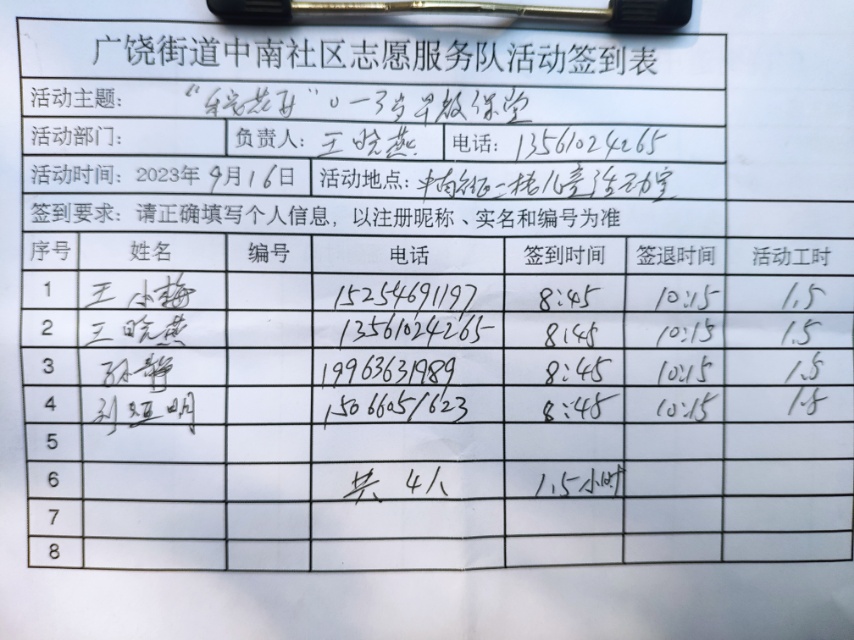 广饶街道中南社区志愿服务队活动签到表
活动主题： 0一3岁早教课堂
活动部门： 负责人：王晓燕 电话：13561024265
活动时间：2023年9月16日 活动地点：中南社区二楼儿童活动室
签到要求：请正确填写个人信息，以注册昵称、实名和编号为准
序号 姓名 编号 电话 签到时间 签退时间 活动工时
1 王小梅 15254691197 8:45 10:15 1.5
2 王晓燕 13561024265 8:45 10:15 1.5
3 孙静 19963631989 8:45 10:15 1.5
4 15066051623 8:45 10:15 1.5
5
6 共 4人 1.5小时
7
8